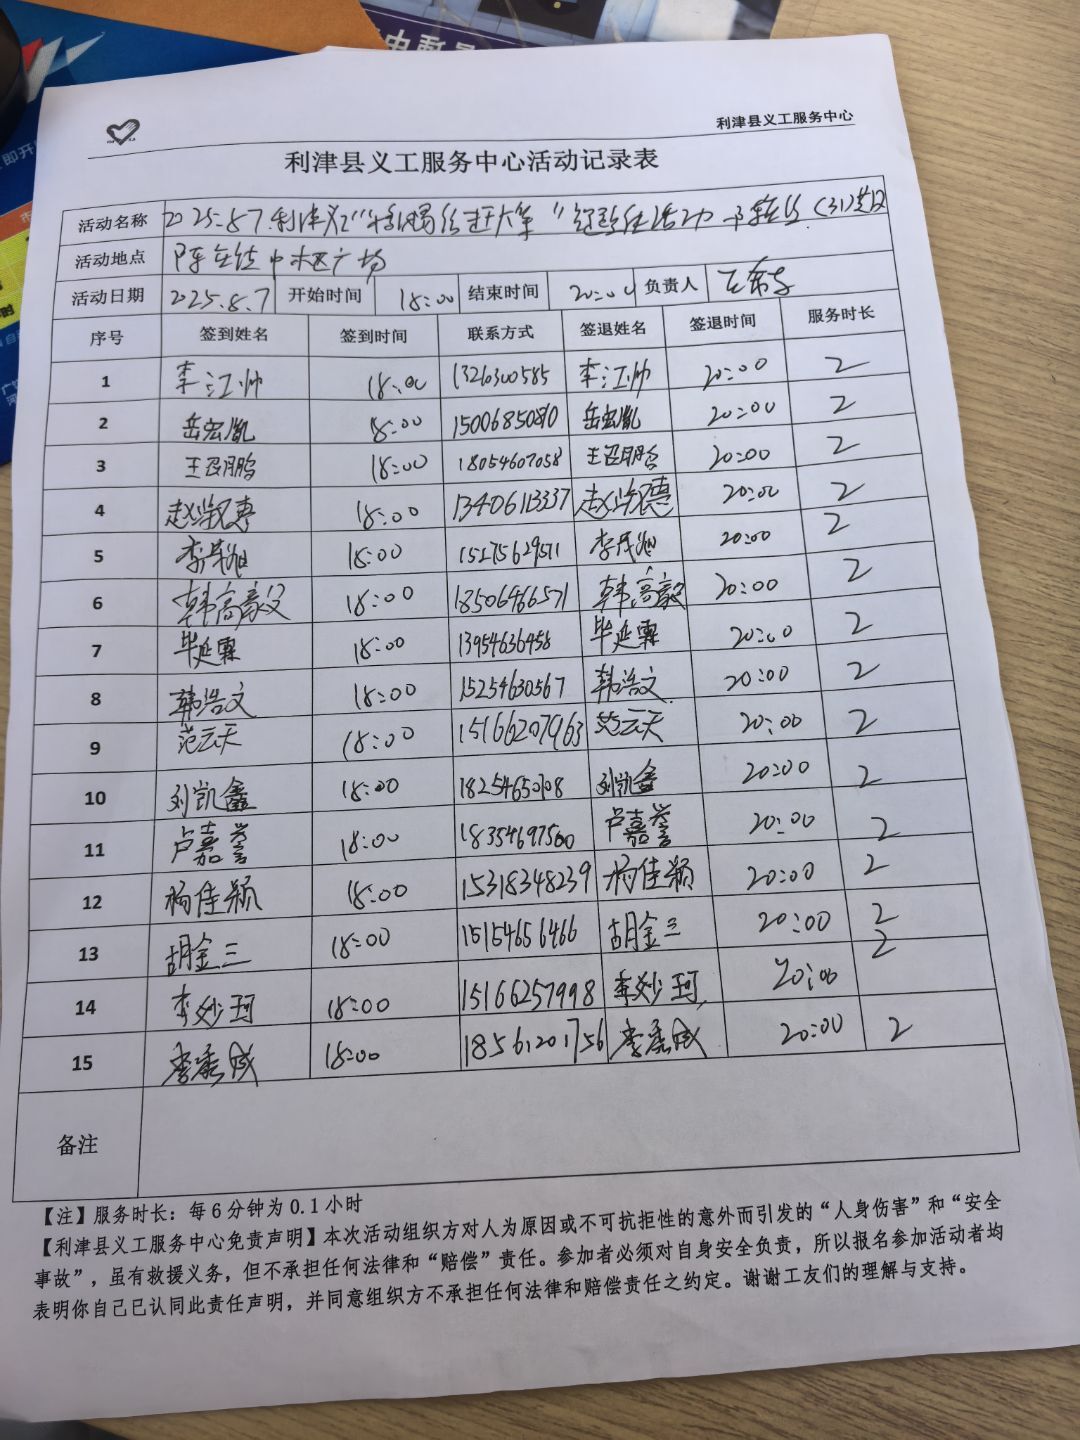 利津县义工服务中心
利津县义工服务中心活动记录表
活动名称 2025.8.7.利津义工“ 大集”
活动地点 陈庄镇中心广场
活动日期 2025.8.7 开始时间 18:00 结束时间 20:00 负责人
序号 签到姓名 签到时间 联系方式 签退姓名 签退时间 服务时长
1 李江帅 18:00 1326300585 李江帅 20:00 2
2 岳宏胤 18:00 岳宏胤 20:00 2
3 王召鹏 18:00 18054607058 王召鹏 20:00 2
4 18:00 13406113337 20:00 2
5 李茂旭 18:00 15275629571 李茂旭 20:00 2
6 韩高毅 18:00 18506466571 韩高毅 20:00 2
7 毕延霖 18:00 13954636458 毕延霖 20:00 2
8 韩浩文 18:00 15254630567 韩浩文 20:00 2
9 范云天 18:00 15166207963 范云天 20:00 2
10 刘凯鑫 18:00 刘凯鑫 20:00 2
11 卢嘉誉 18:00 18354697500 卢嘉誉 20:00 2
12 杨佳颖 18:00 15318348239 杨佳颖 20:00 2
13 胡金三 18:00 15154656466 胡金三 20:00 2
14 李妙珂 18:00 15166257998 李妙珂 20:00 2
15 18:00 18561201756 20:00 2
备注
【注】服务时长：每6分钟为0.1小时
【利津县义工服务中心免责声明】本次活动组织方对人为原因或不可抗拒性的意外而引发的“人身伤害”和“安全
事故”，虽有救援义务，但不承担任何法律和“赔偿”责任。参加者必须对自身安全负责，所以报名参加活动者均
表明你自己已认同此责任声明，并同意组织方不承担任何法律和赔偿责任之约定。谢谢工友们的理解与支持。